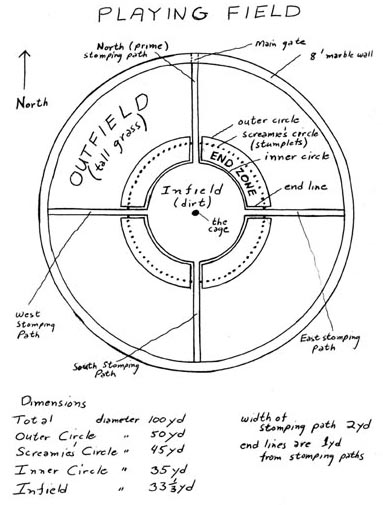 PLAYING FIELD
North (prime)
stomping path
main gate
8' marble wall
North
OUTFIELD
(tall grass)
outer circle
screamie's circle
(stumplets)
inner circle
END ZONE
end line
Infield
(dirt)
the
cage
West
Stomping
Path
South Stomping
Path
East stomping
path
Dimensions
Total diameter 100 yd
Outer Circle " 50 yd
Screamie's Circle " 45 yd
Inner Circle " 35 yd
Infield " 33 1/3 yd
width of
stomping path 2yd
end lines are 1yd
from stomping paths